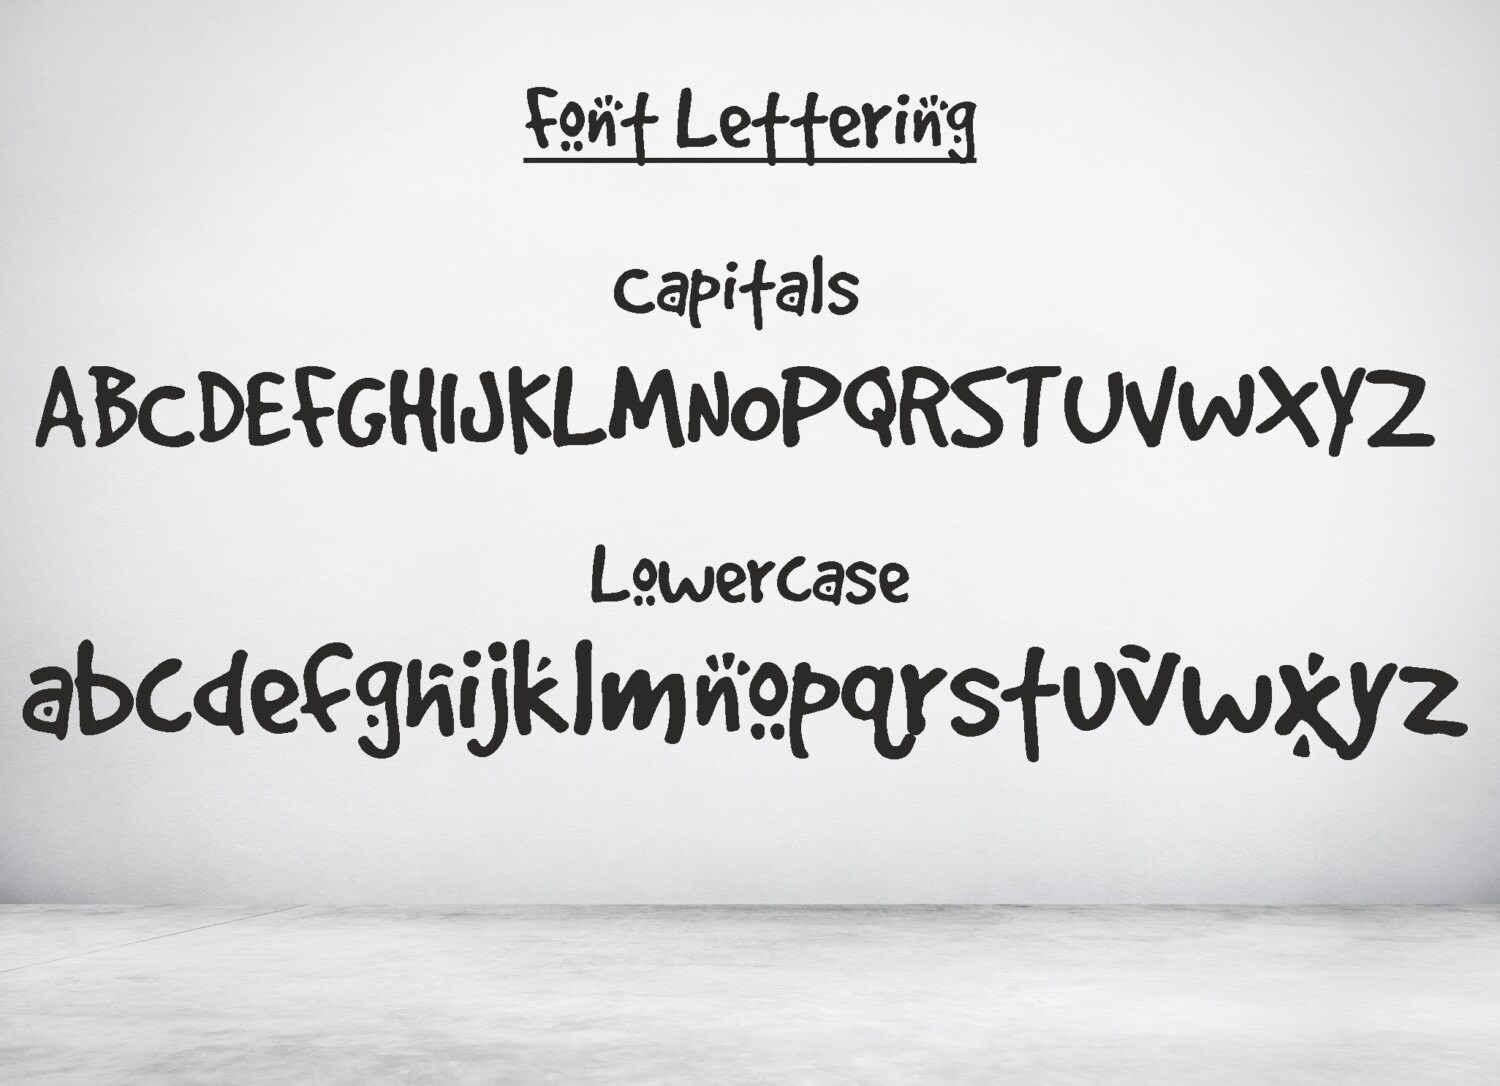 Font Lettering
Capitals
ABCDEFGHIJKLMNOPQRSTUVWXYZ
Lowercase
abcdefghijklmnopqrstuvwxyz